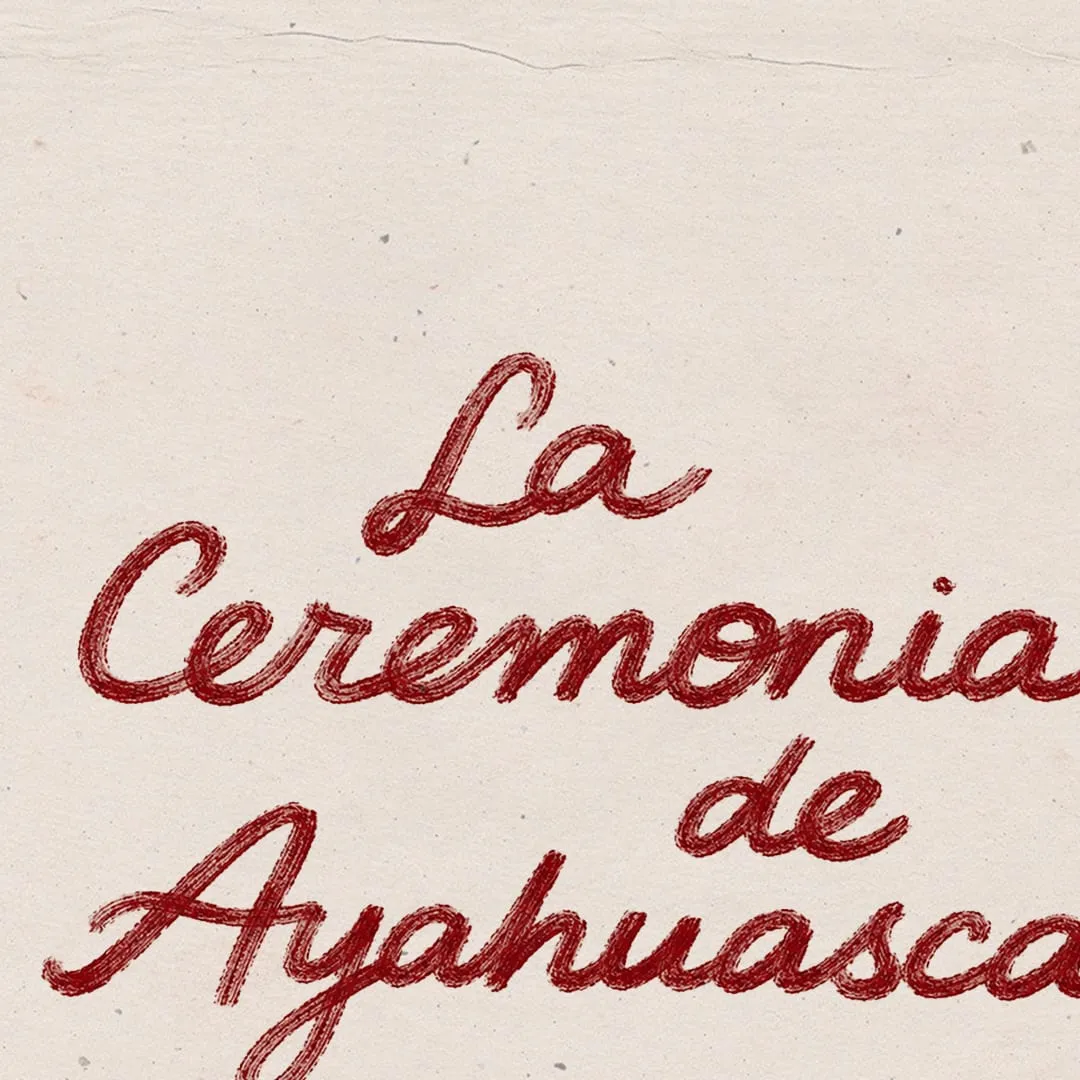 La
Ceremonia
de
Ayahuasca